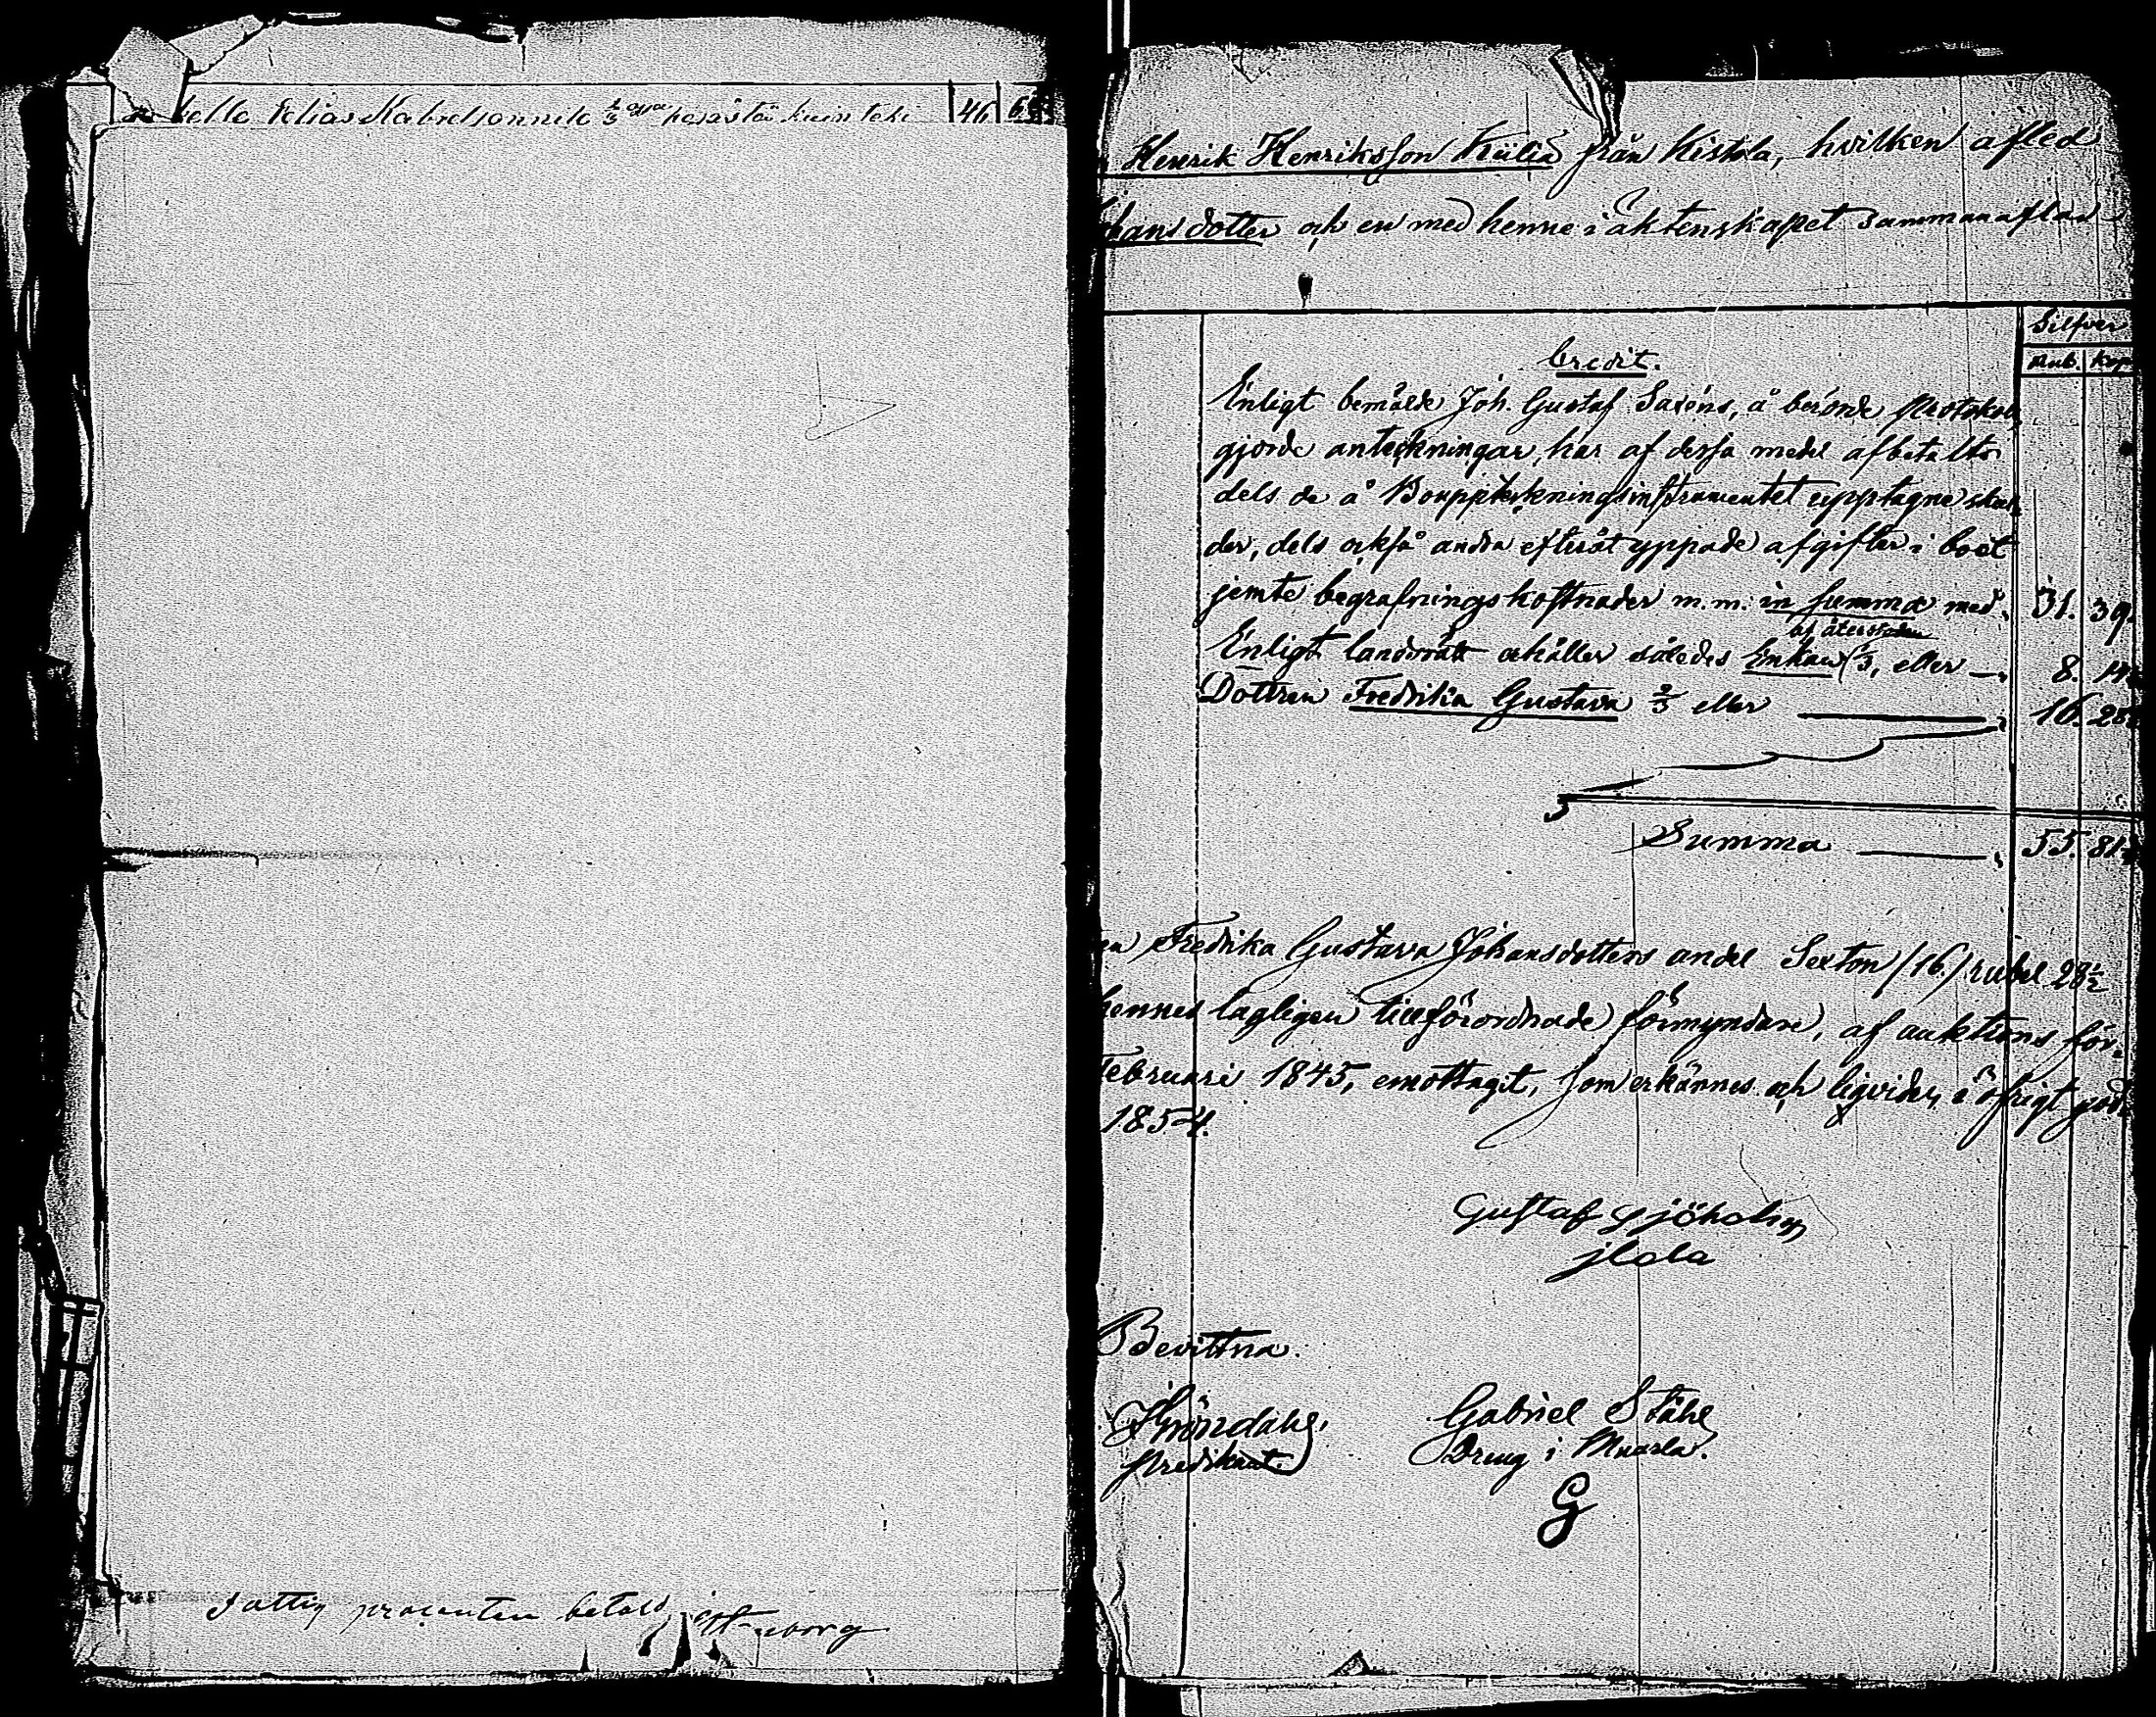 Elias Kabrelsonnile 1/3 osa perästä kuin teki 46
Henrik Henriksson Küliä från Kistola, hvilken afled
hansdotter och en med henne i äktenskapet sammanaflad
Silfver
Credit. Rub. Kop
Enligt bemälde Joh. Gustaf Saxéns, å berörde Protokoll
gjorde anteckningar, har af dessa medel afbetalts
dels de å Bouppteckningsinstrumentet upptagne skul
der, dels också andra efteråt yppade afgifter i boet
jemte begrafningskostnader m.m. in summa med 31. 39.
af återstoden
Enligt landsrätt erhåller således Enkan 1/3, eller 8. 14
Dottren Fredrika Gustava 2/3 eller 16. 28
Summa 55. 81
en Fredrika Gustava Johansdotters andel Sexton /16/ rubel 28 1/2
hennes lagligen tillförordnade förmyndare, af auktions för-
Februari 1845, emottagit, som erkännes och liqvider, i öfrigt god
1854.
Gustaf Sjöholm
Bevittna.
Gabriel Ståhl
Predikant. Dreng i Muurla.
G
Fattig procenten betald